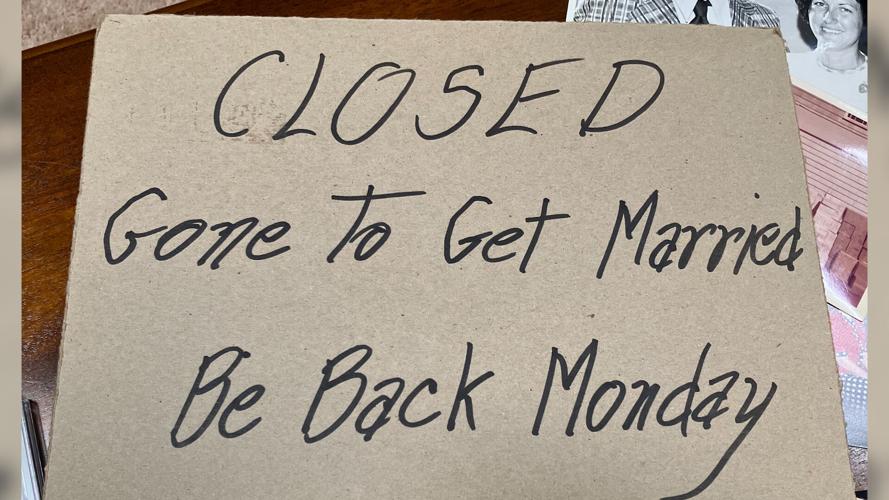 CLOSED
Gone To Get Married
Be Back Monday